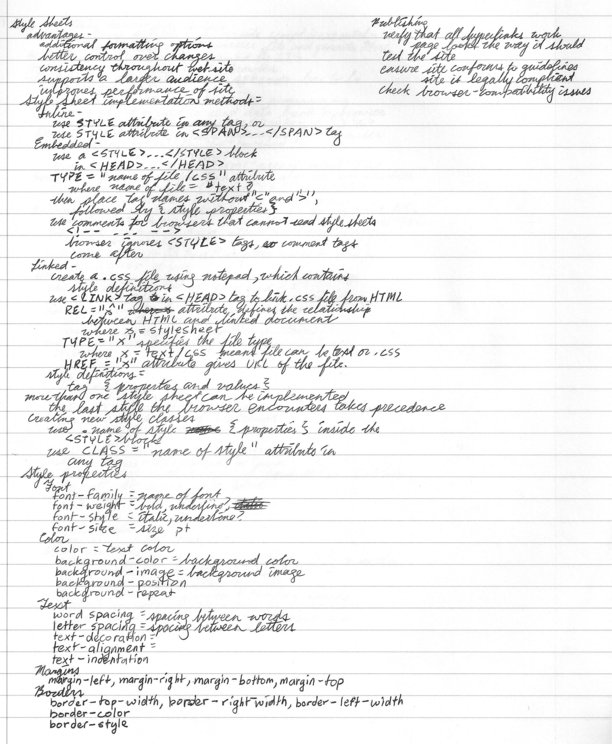 Style Sheets
advantages -
additional formatting options
better control over changes
consistency throughout web site
supports a larger audience
improves performance of site
Style sheet implementation methods =
Inline -
use STYLE attribute in any tag, or
use STYLE attribute in <SPAN>...</SPAN> tag
Embedded -
use a <STYLE>...</STYLE> block
in <HEAD>...</HEAD>
TYPE = "name of file/css" attribute
where name of file = "text"?
then place tag names without "<" and ">",
followed by { style properties }
use comments for browsers that cannot read style sheets
<!-- - - - - -->
browser ignores <STYLE> tags, so comment tags
come after
Linked -
create a .css file using notepad, which contains
style definitions
use <LINK> tag in <HEAD> tag to link .css file from HTML
REL = "x" attribute, defines the relationship
between HTML and linked document
where x = stylesheet
TYPE = "x" specifies the file type
where x = text/css means file can be text or .css
HREF = "x" attribute gives URL of the file.
style definitions =
tag { properties and values }
more than one style sheet can be implemented
the last style the browser encounters takes precedence
Creating new style classes
use .name of style { properties } inside the
<STYLE> block
use CLASS = "name of style" attribute in
any tag
Style properties
Font
font-family = name of font
font-weight = bold, underline?,
font-style = italic, underline?
font-size = size pt
Color
color = text color
background-color = background color
background-image = background image
background-position
background-repeat
Text
word spacing = spacing between words
letter spacing = spacing between letters
text-decoration =
text-alignment =
text-indentation
Margins
margin-left, margin-right, margin-bottom, margin-top
Borders
border-top-width, border-right width, border-left-width
border-color
border-style
Publishing
verify that all hyperlinks work
page looks the way it should
test the site
ensure site conforms to guidelines
site is legally compliant
check browser-compatibility issues